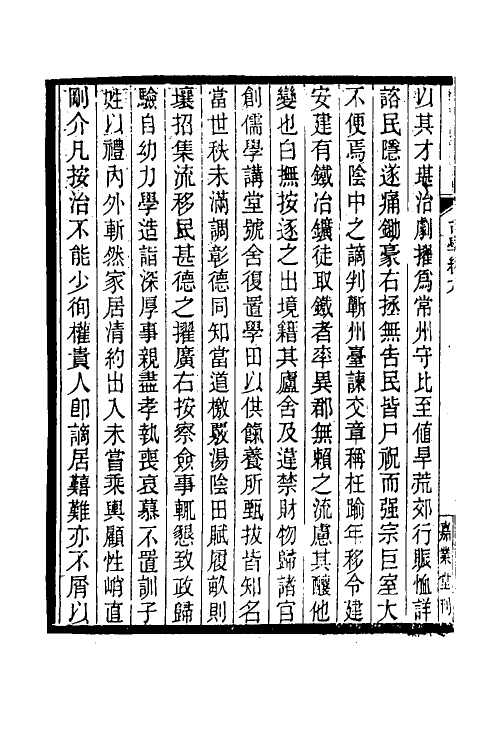 以其才堪治劇擢為常州守比至値旱荒郊行賑恤詳
諮民隱遂痛鋤豪右拯無吿民皆尸祝而强宗巨室大
不便焉陰中之謫判蘄州臺諫交章稱枉踰年移令建
安建有鐵冶鑛徒取鐵者率異郡無賴之流慮其釀他
變也白撫按逐之出境籍其廬舍及違禁財物歸諸官
創儒學講堂號舍復置學田以供餼養所甄拔皆知名
當世秩未滿調彰德同知當道檄覈湯陰田賦履畝則
壤招集流移民甚德之擢廣右按察僉事輒懇致政歸
驗自幼力學造詣深厚事親盡孝執喪哀慕不置訓子
姓以禮內外斬然家居清約出入未嘗乘輿顧性峭直
剛介凡按治不能少徇權貴人卽謫居囏難亦不屑以
嘉業堂刊